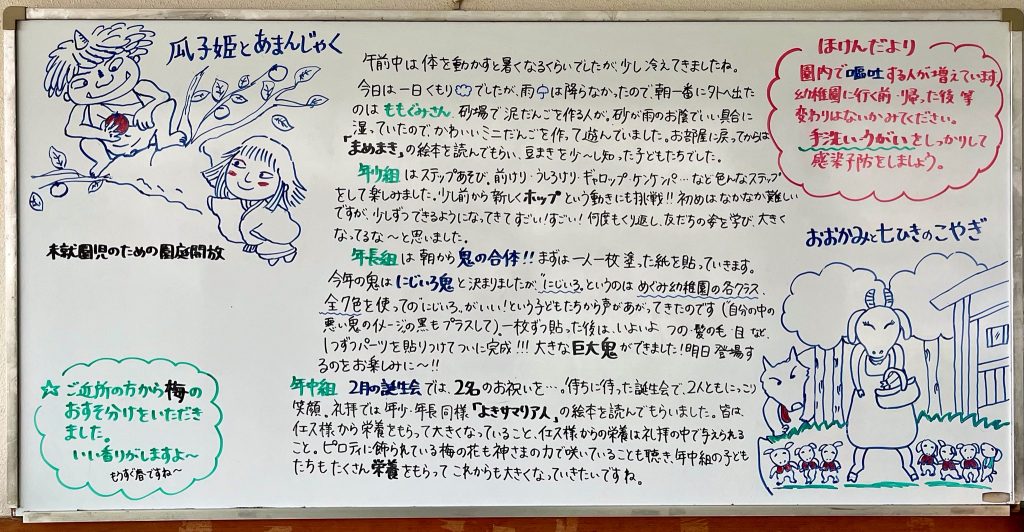 瓜子姫とあまんじゃく
未就園児のための園庭開放
☆ご近所の方から梅の
おすそ分けをいただき
ました。
いい香りがしますよ～
もうすぐ春ですね～
午前中は体を動かすと暑くなるくらいでしたが、少し冷えてきましたね。
今日は一日くもりでしたが、雨は降らなかったので、朝一番に外へ出た
のはももぐみさん。砂場で泥だんごを作る人が。砂が雨のお蔭でいい具合に
湿っていたので、かわいいミニだんごを作って遊んでいました。お部屋に戻ってからは
「まめまき」の絵本を読んでもらい、豆まきを少～し知った子どもたちでした。
年少組はステップあそび。前けり・うしろけり・ギャロップ・ケンケンパ…など色んなステップ
をして楽しみました。少し前から新しくホップという動きにも挑戦!! 初めはなかなか難しい
ですが、少しずつできるようになってきてすごい!すごい! 何度もくり返し、友だちの姿を学び、大きく
なってるな～と思いました。
年長組は朝から鬼の合体!! まずは一人一枚塗った紙を貼っていきます。
今年の鬼はにじいろ鬼と決まりましたが、"にじいろ"というのはめぐみ幼稚園の各クラス、
全7色を使っての"にじいろ"がいい!という子どもたちから声があがってきたのです(自分の中の
悪い鬼のイメージの黒もプラスして)。一枚ずつ貼った後は、いよいよ つの・髪の毛・目 など、
1つずつパーツを貼りつけてついに完成!!! 大きな巨大鬼ができました!明日登場す
るのをお楽しみに～!!
年中組 2月の誕生会では、2名のお祝いを…。待ちに待った誕生会で、2人ともにっこり
笑顔。礼拝では年少・年長同様「よきサマリア人」の絵本を読んでもらいました。皆は、
イエス様から栄養をもらって大きくなっていること、イエス様からの栄養は礼拝の中で与えられる
こと。ピロティに飾られている梅の花も神さまの力で咲いていることも聴き、年中組の子ども
たちもたくさん栄養をもらってこれからも大きくなっていきたいですね。
ほけんだより
園内で嘔吐する人が増えています。
幼稚園に行く前・帰った後 等
変わりはないかみてください。
手洗い・うがいをしっかりして
感染予防をしましょう。
おおかみと七ひきのこやぎ